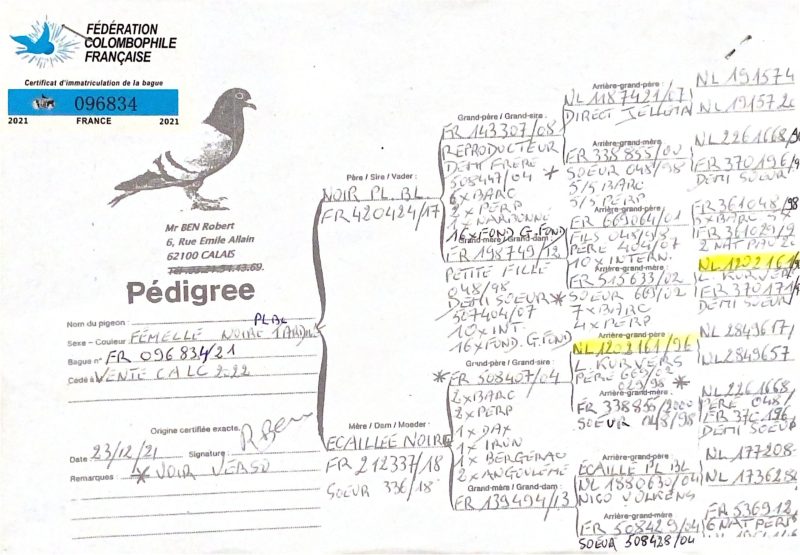 FÉDÉRATION
COLOMBOPHILE
FRANÇAISE
Certificat d'immatriculation de la bague
096834
2021 FRANCE 2021
Mr BEN Robert
6, Rue Emile Allain
62100 CALAIS
Pédigree
Nom du pigeon :
PL BL
Sexe - Couleur FEMELLE NOIRE TARDIVE
Bague n° FR 096834/21
Cédé à VENTE CALC 2022
Origine certifiée exacte,
Date : 23/12/21 Signature :
Remarques : * VOIR VERSO
Père / Sire / Vader :
NOIR PL. BL.
FR 420424/17
Mère / Dam / Moeder :
ECAILLEE NOIRE
FR 212337/18
SOEUR 336/18
Grand-père / Grand-sire :
FR 143307/08
REPRODUCTEUR
DEMI FRERE
508447/04 *
6 x BARC
2 x PERP
2 x NARBONNE
16 x FOND G. FOND
Grand-mère / Grand-dam :
FR 198749/12
PETITE FILLE
048/98
DEMI SOEUR *
507404/07
10 x INT.
16 x FOND G. FOND
Grand-père / Grand-sire :
* FR 508407/04
2 x BARC
2 x PERP
1 x DAX
1 x IRUN
1 x BERGERAC
2 x ANGOULEME
Grand-mère / Grand-dam :
FR 139494/13
Arrière-grand-père :
NL 1187421/07
DIRECT JELLUTA
Arrière-grand-mère :
FR 338855/00
SOEUR 048/98
5/5 BARC
5/5 PERP
Arrière-grand-père :
FR 669064/01
FILS 048/98
PERE 404/07
10 x INTERN.
Arrière-grand-mère :
FR 513633/02
SOEUR 669/02
7 x BARC
4 x PERP
Arrière-grand-père
NL 1202161/96
L. KURVERS
PERE 669/02
029/98 *
Arrière-grand-mère :
FR 338855/2000
SOEUR 048/98
Arrière-grand-père :
ECAILLE PL BL
NL 1880630/04
NICO VOLKENS
Arrière-grand-mère
FR 508429/04
SOEUR 508428/04
NL 191574
NL 191572
NL 2261668/
FR 370196/9
DEMI SOEUR
FR 361048/98
FR 361029/9
2 NAT PAU
NL 1202161/
L. KURVERS
FR 370171/
DEMI SOEUR
NL 2849617
NL 2849657
NL 2261668
PERE 048/
FR 370196
DEMI SOEUR
NL 177208
NL 1736280
FR 536912
6 NAT PERP